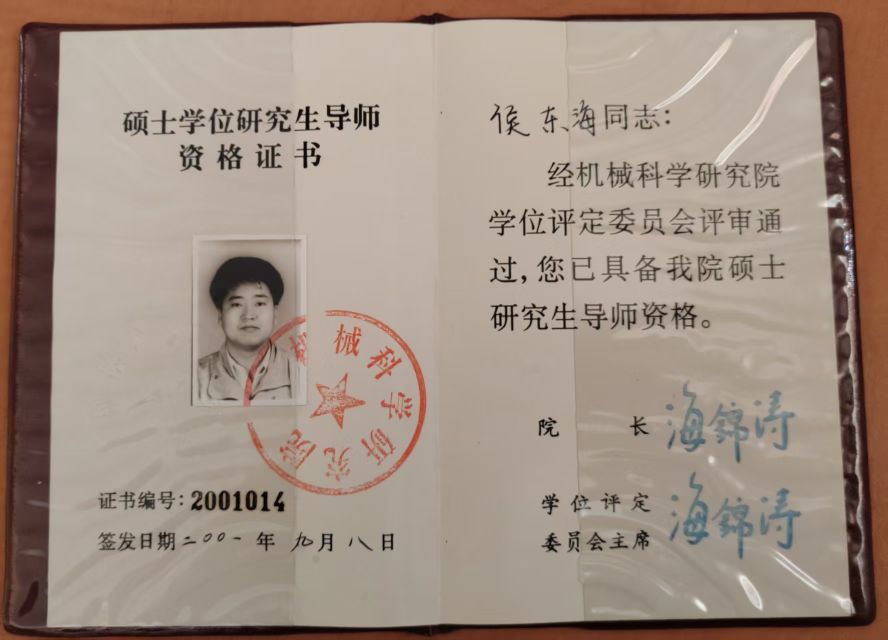 硕士学位研究生导师
资格证书
机械科学研究院
证书编号：2001014
签发日期二〇〇一年九月八日
侯东海同志：
经机械科学研究院
学位评定委员会评审通
过，您已具备我院硕士
研究生导师资格。
院长 海锦涛
学位评定
委员会主席 海锦涛